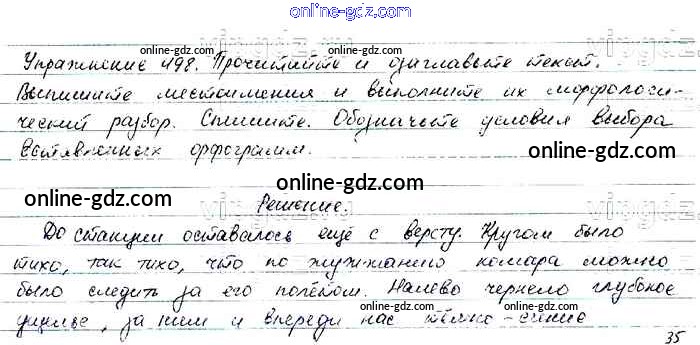 online-gdz.com
Упражнение 498. Прочитайте и озаглавьте текст.
online-gdz.com online-gdz.com
Выпишите местоимения и выполните их морфологи-
ческий разбор. Спишите. Обозначьте условия выбора
вставленных орфограмм.
online-gdz.com online-gdz.com
online-gdz.com
Решение.
До станции оставалось ещё с версту. Кругом было
тихо, так тихо, что по жужжанию комара можно
online-gdz.com online-gdz.com
было следить за его полётом. Налево чернело глубокое
online-gdz.com
ущелье, за ним и впереди нас тёмно-синие
35